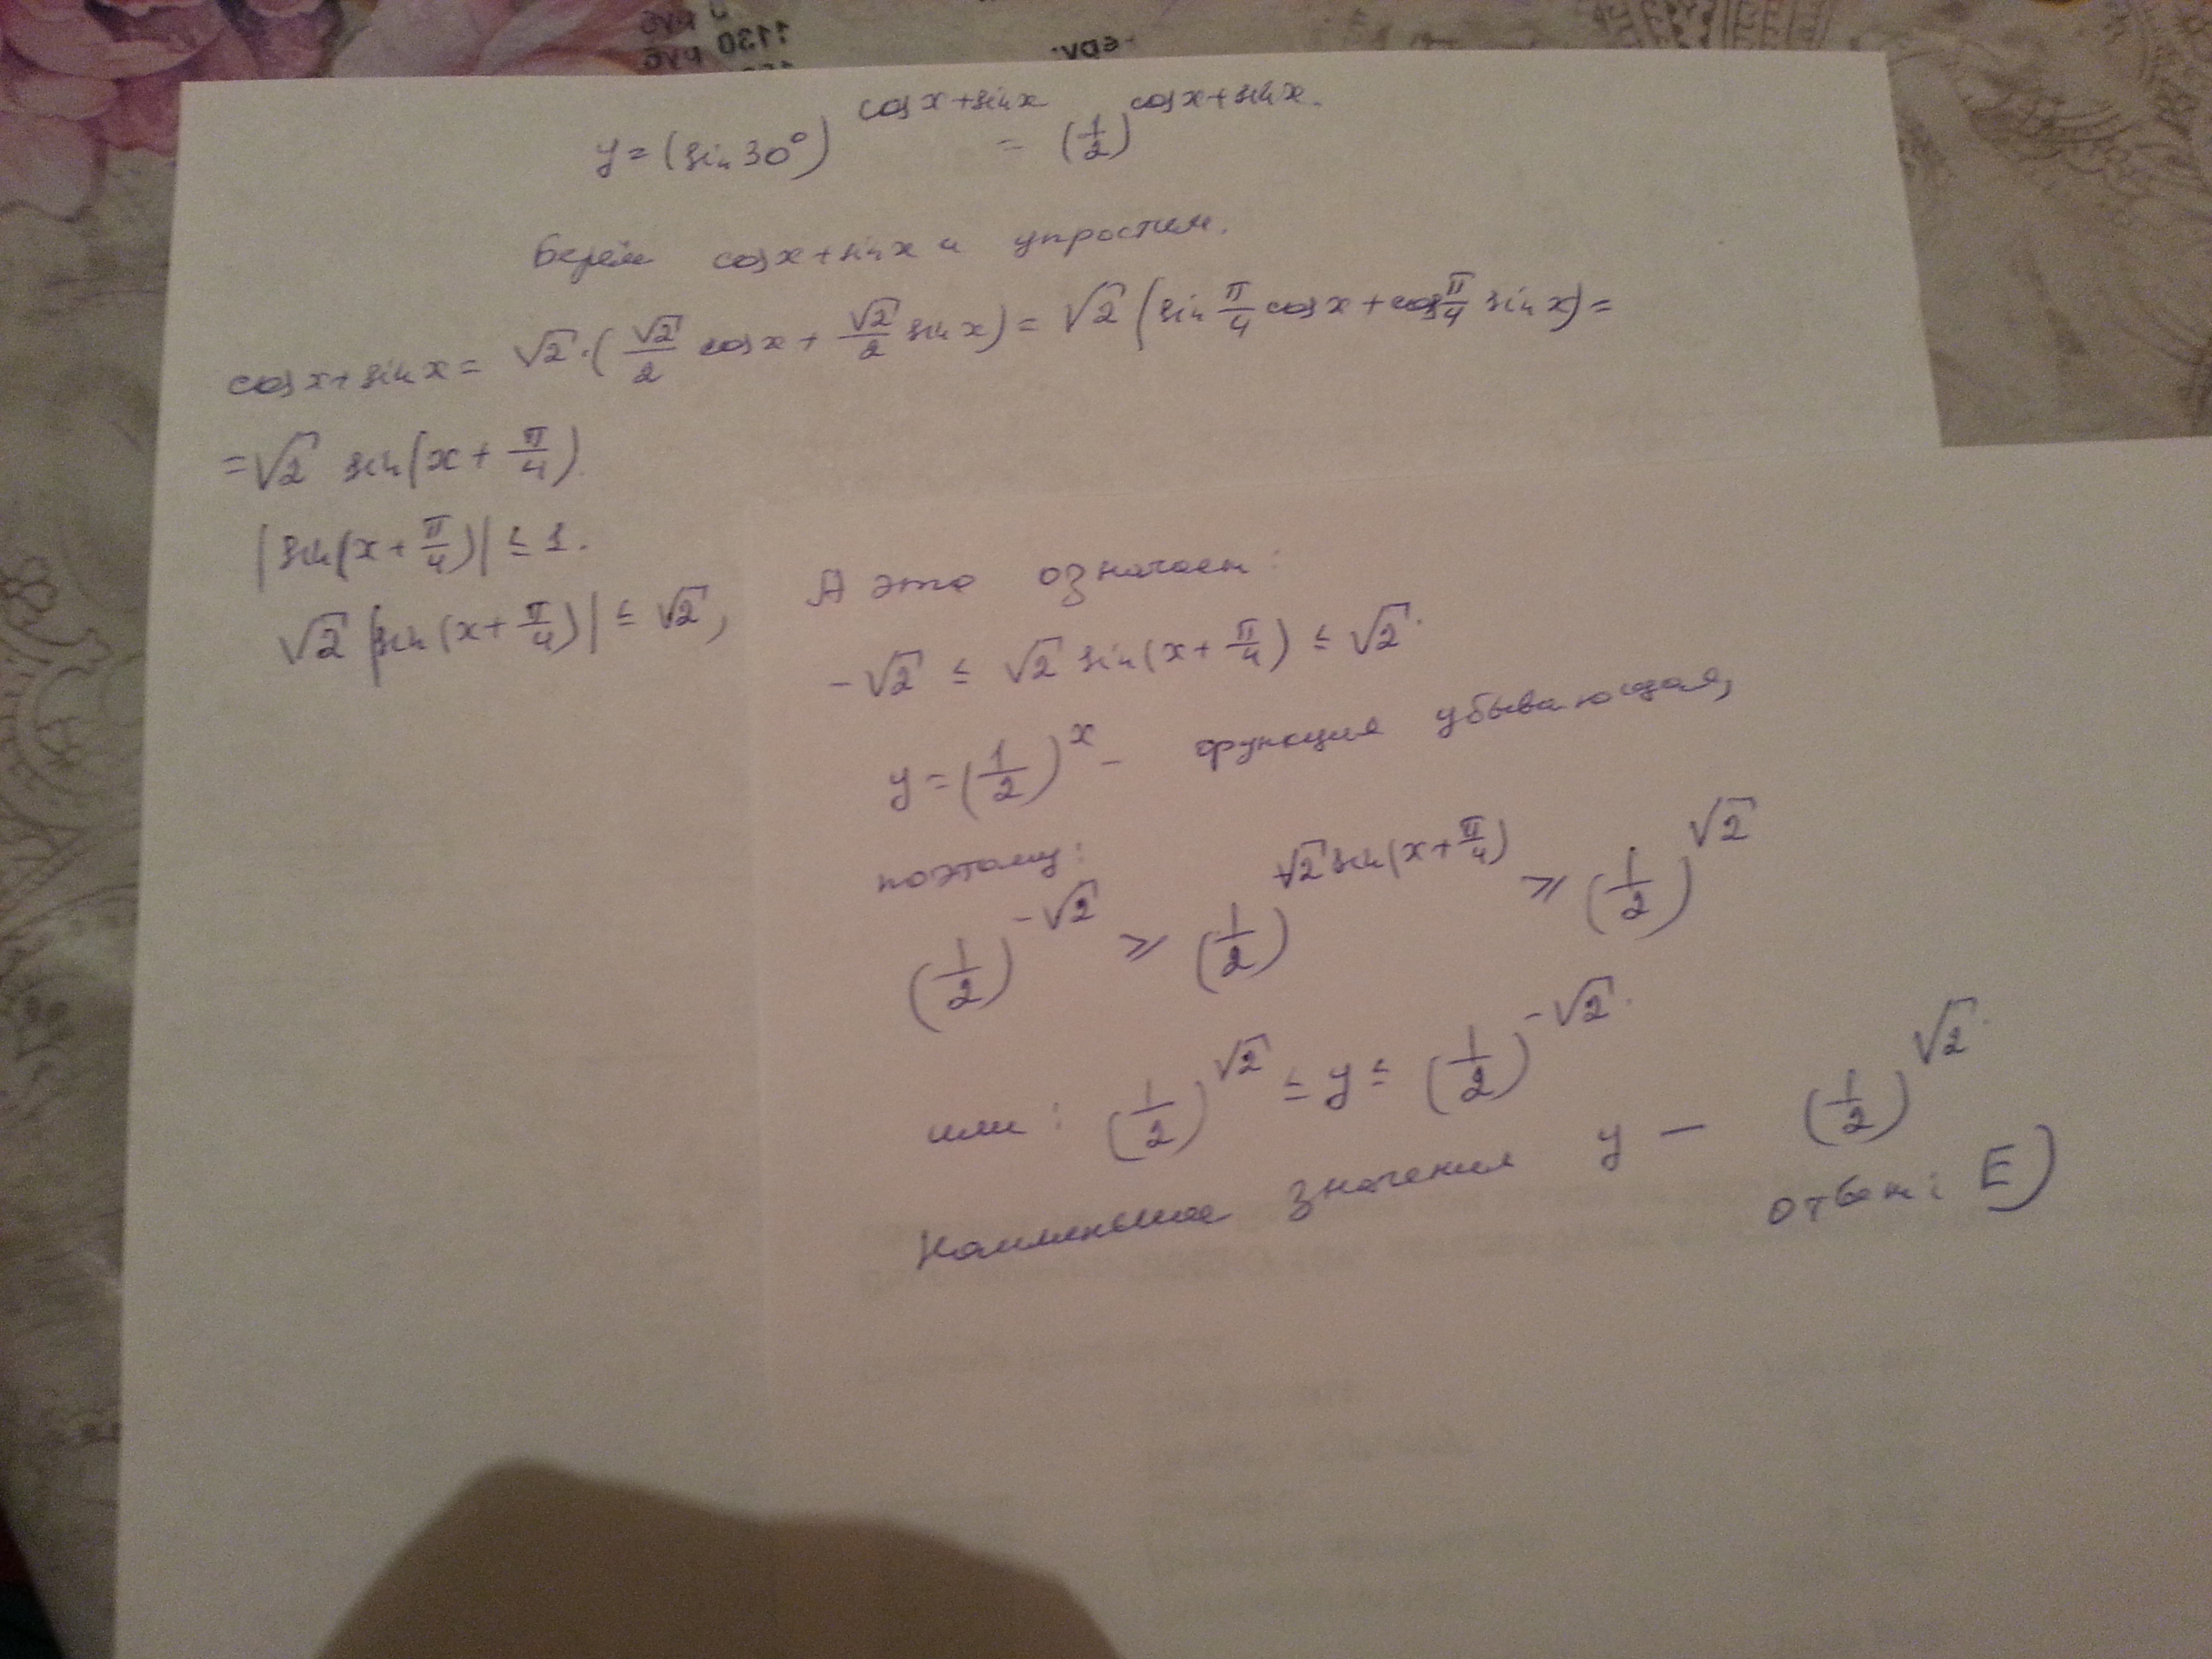 y = (sin 30°)^(cos x + sin x) = (1/2)^(cos x + sin x).
Берём cos x + sin x и упростим.
cos x + sin x = √2 · (√2/2 cos x + √2/2 sin x) = √2 (sin π/4 cos x + cos π/4 sin x) =
= √2 sin(x + π/4).
|sin(x + π/4)| ≤ 1.
√2 |sin(x + π/4)| ≤ √2,
А это означает:
-√2 ≤ √2 sin(x + π/4) ≤ √2.
y = (1/2)^x - функция убывающая,
поэтому:
(1/2)^(-√2) ≥ (1/2)^(√2 sin(x + π/4)) ≥ (1/2)^(√2)
или: (1/2)^(√2) ≤ y ≤ (1/2)^(-√2).
Наименьшее значения y — (1/2)^(√2).
ответ: E)
1130 руб